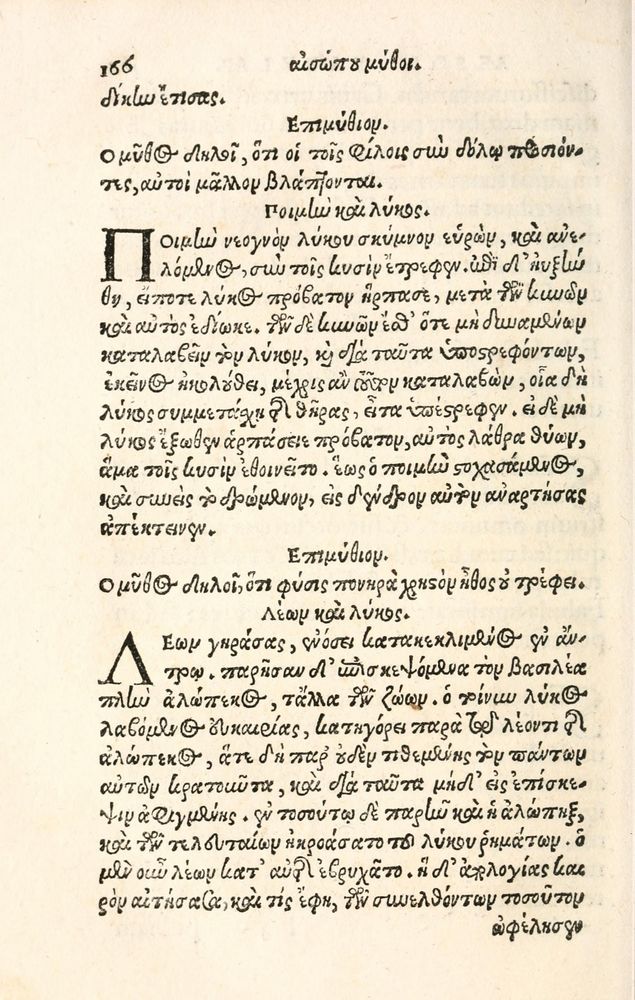 166 αἰσώπου μῦθοι.
δίκην ἔτισας.
Ἐπιμύθιον.
Ὁ μῦθος δηλοῖ, ὅτι οἱ τοῖς φίλοις σὺν δόλῳ προσιόν-
τες, αὐτοὶ μᾶλλον βλάπτονται.
Ποιμὴν καὶ λύκος.
Ποιμὴν νεογνὸν λύκου σκύμνον εὑρὼν, καὶ ἀνε-
λόμενος, σὺν τοῖς κυσὶν ἔτρεφεν. ἐπεὶ δ' ηὐξήν
θη, εἴ ποτε λύκος πρόβατον ἥρπασε, μετὰ τῶν κυνῶν
καὶ αὐτὸς ἐδίωκε. τῶν δὲ κυνῶν ἔσθ' ὅτε μὴ δυναμένων
καταλαβεῖν τὸν λύκον, καὶ διὰ ταῦτα ὑποστρεφόντων,
ἐκεῖνος ἠκολούθει, μέχρις ἂν τοῦτον καταλαβὼν, οἷα δὴ
λύκος συμμετάσχῃ τῆς θήρας, εἶτα ὑπέστρεφεν. εἰ δὲ μὴ
λύκος ἔξωθεν ἁρπάσειε πρόβατον, αὐτὸς λάθρα θύων,
ἅμα τοῖς κυσὶν ἐθοινεῖτο. ἕως ὁ ποιμὴν στοχασάμενος,
καὶ συνεὶς τὸ δρώμενον, εἰς δένδρον αὐτὸν ἀναρτήσας
ἀπέκτεινεν.
Ἐπιμύθιον.
Ὁ μῦθος δηλοῖ, ὅτι φύσις πονηρὰ χρηστὸν ἦθος οὐ τρέφει.
Λέων καὶ λύκος.
Λέων γηράσας, ἐνόσει κατακεκλιμένος ἐν ἄν-
τρῳ. παρῆσαν δ' ἐπισκεψόμενα τὸν βασιλέα
πλὴν ἀλώπεκος, τἄλλα τῶν ζώων. ὁ τοίνυν λύκος
λαβόμενος εὐκαιρίας, κατηγόρει παρὰ τῷ λέοντι τῆς
ἀλώπεκος, ἅτε δὴ παρ' οὐδὲν τιθεμένης τὸν πάντων
αὐτῶν κρατοῦντα, καὶ διὰ ταῦτα μηδ' εἰς ἐπίσκε-
ψιν ἀφιγμένης. ἐν τοσούτῳ δὲ παρῆν καὶ ἡ ἀλώπηξ,
καὶ τῶν τελευταίων ἠκροάσατο τοῦ λύκου ῥημάτων. ὁ
μὲν οὖν λέων κατ' αὐτῆς ἐβρυχᾶτο. ἡ δ' ἀπολογίας και
ρὸν αἰτήσασα, καὶ τίς ἔφη, τῶν συνελθόντων τοσοῦτον
ὠφέλησεν